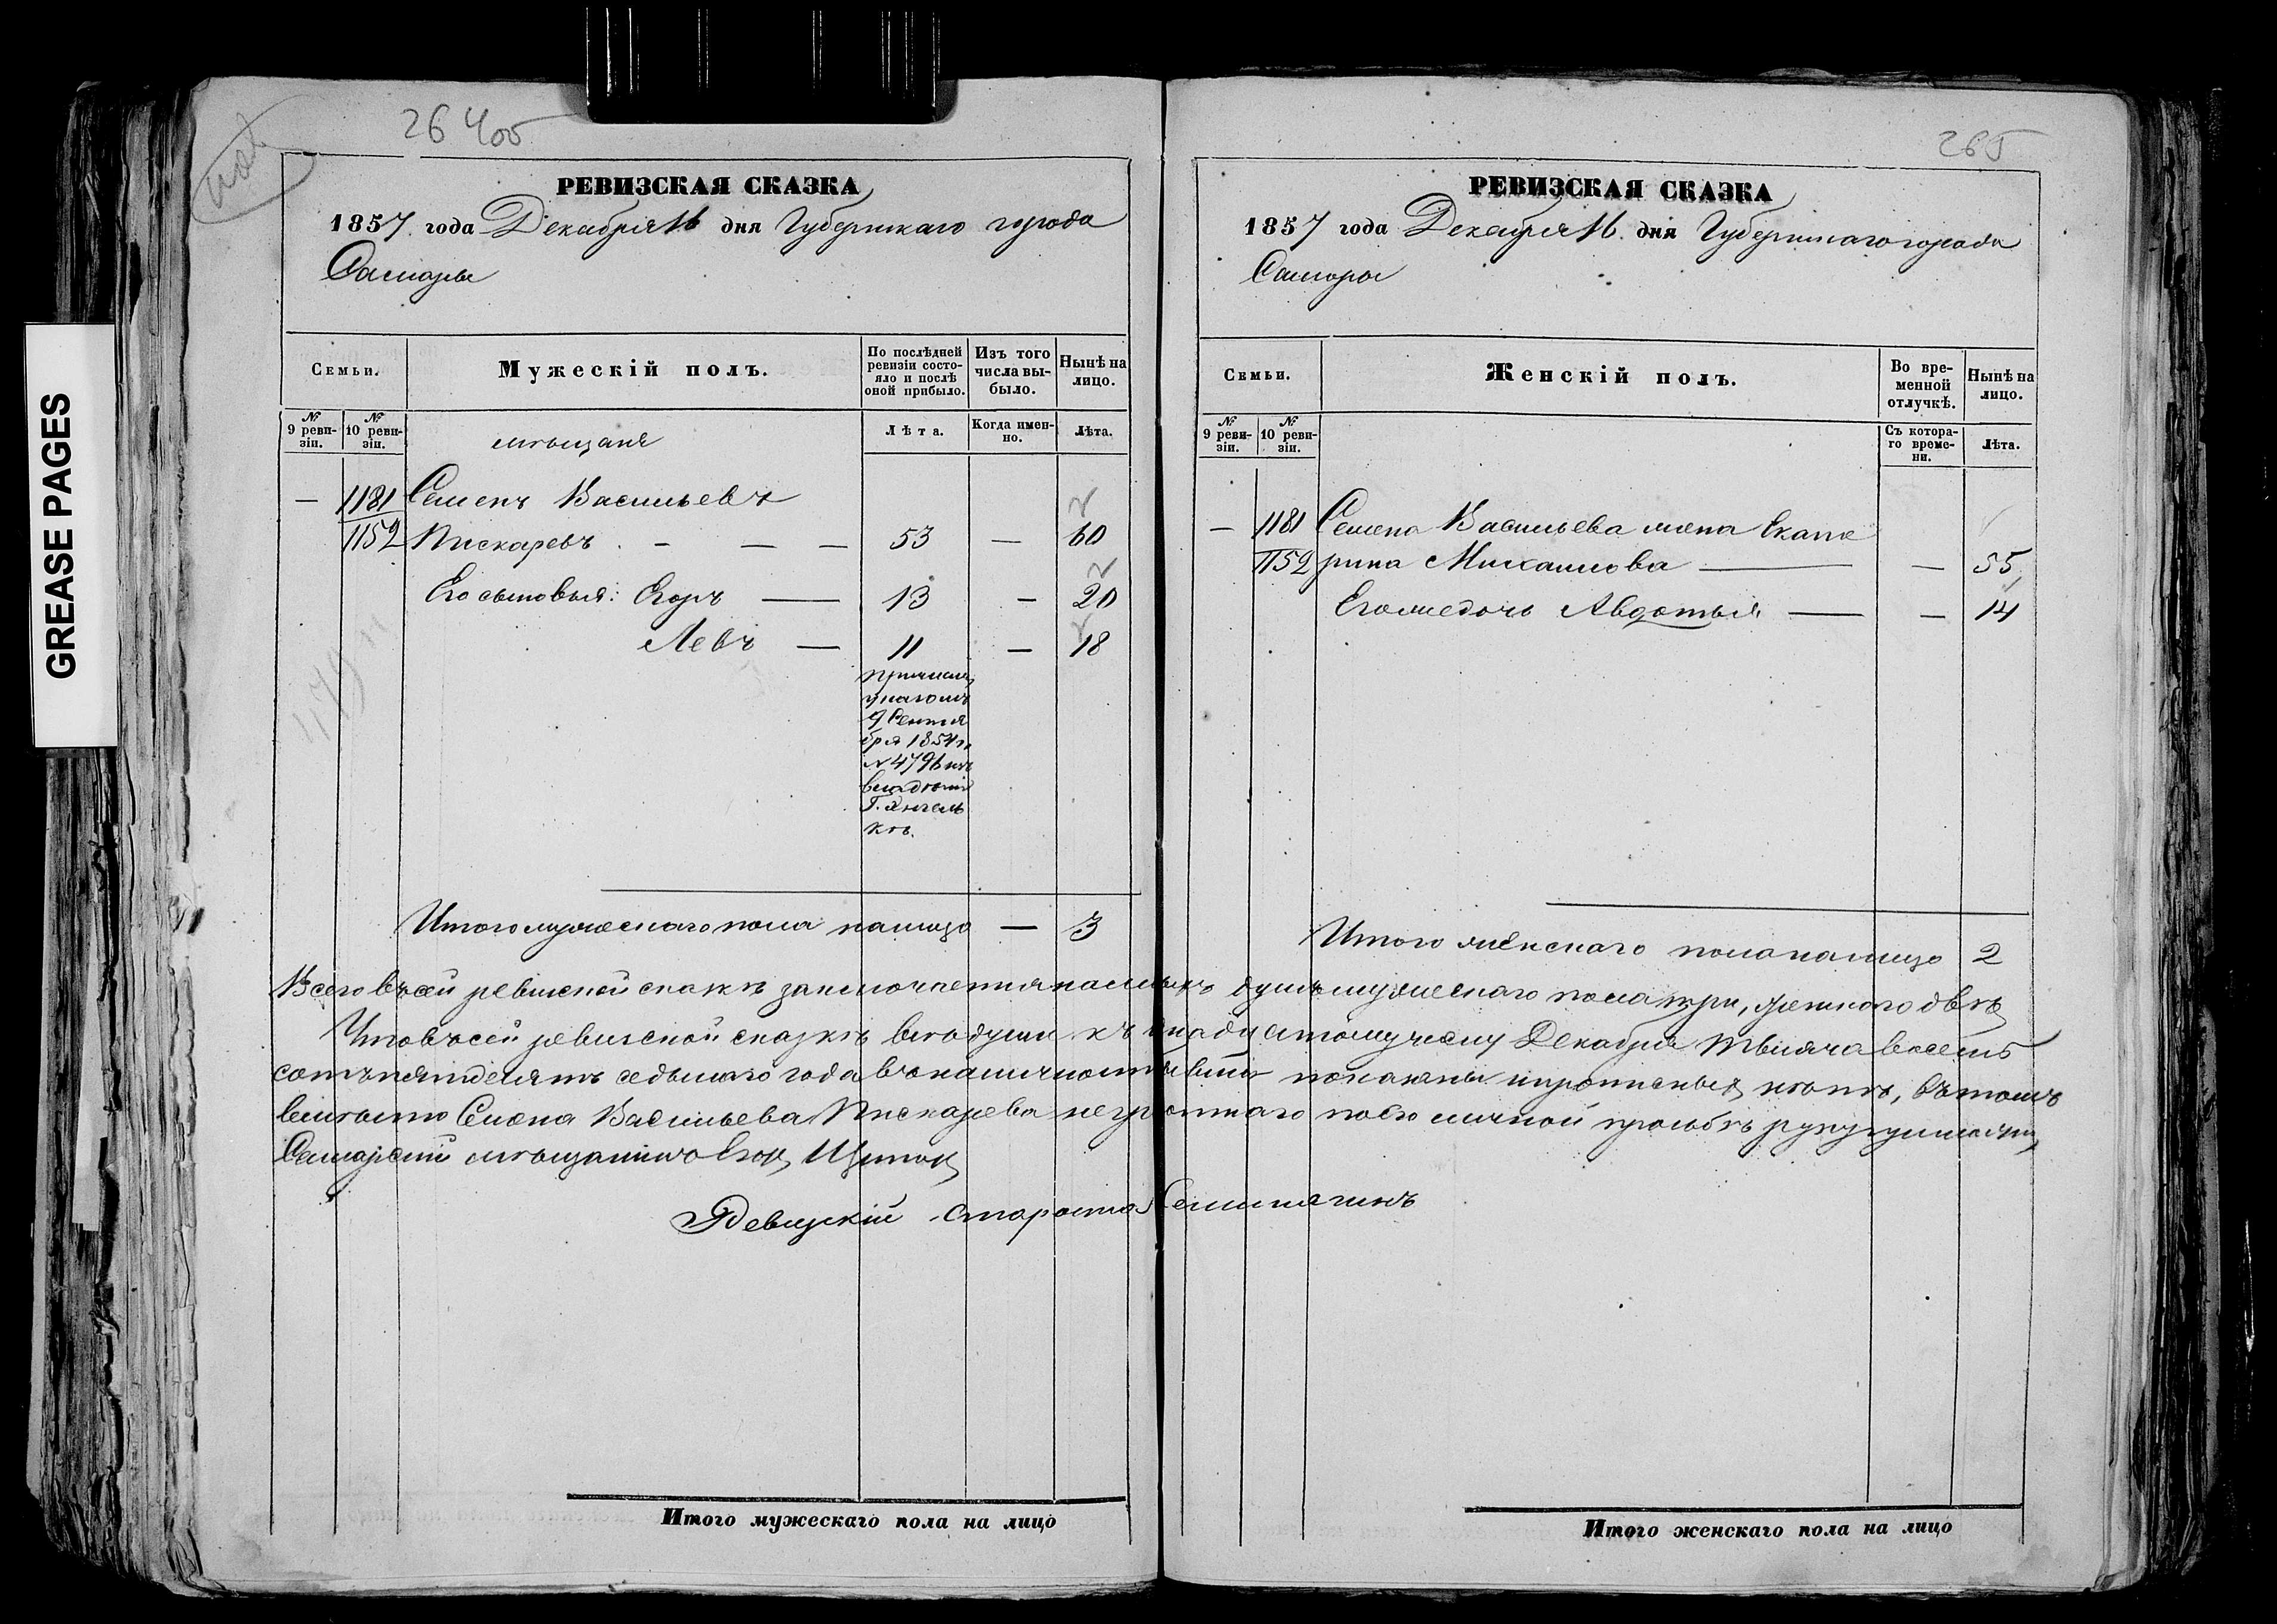 GREASE PAGES
26 405
РЕВИЗСКАЯ СКАЗКА
1857 года Декабря 16 дня Губернскаго города
Самары
Семьи.
Мужескій полъ.
По послѣдней ревизіи состояло и послѣ оной прибыло.
Изъ того числа выбыло.
Нынѣ на лицо.
№ 9 ревизіи.
№ 10 ревизіи.
мѣщане
Лѣта.
Когда именно.
Лѣта.
— 1181 Семенъ Васильевъ
1152 Пискаревъ . — — — 53 — 60
Его сыновья: Егоръ — 13 — 20
Левъ — 11 — 18
причислен
указомъ
9 Сентя
бря 1854 г.
№ 4796 изъ
владѣнія
Итого мужескаго пола налицо — 3
265
РЕВИЗСКАЯ СКАЗКА
1857 года Декабря 16 дня Губернскаго города
Самары
Семьи.
Женскій полъ.
Во временной отлучкѣ.
Нынѣ на лицо.
№ 9 ревизіи.
№ 10 ревизіи.
Съ котораго времени.
Лѣта.
— 1181 Семена Васильева жена Екате
1152 рина Михаилова — — 55
Его жедочь Авдотья — — 14
Итого женскаго пола налицо 2
Всего въ сей ревизской сказкѣ заключается налицо душъ мужескаго пола три, женскаго двѣ
Что въ сей ревизской сказкѣ всѣ души къ Декабря тысяча восемь
сотъ пятьдесятъ седьмаго года въ наличности показаны и прописныхъ нѣтъ, въ томъ
вмѣсто Семена Васильева Пискарева неграмотнаго по его личной прозьбѣ руку приложилъ
Самарскій мѣщанинъ Егор
Ревизскій Староста
Итого мужескаго пола на лицо
Итого женскаго пола на лицо